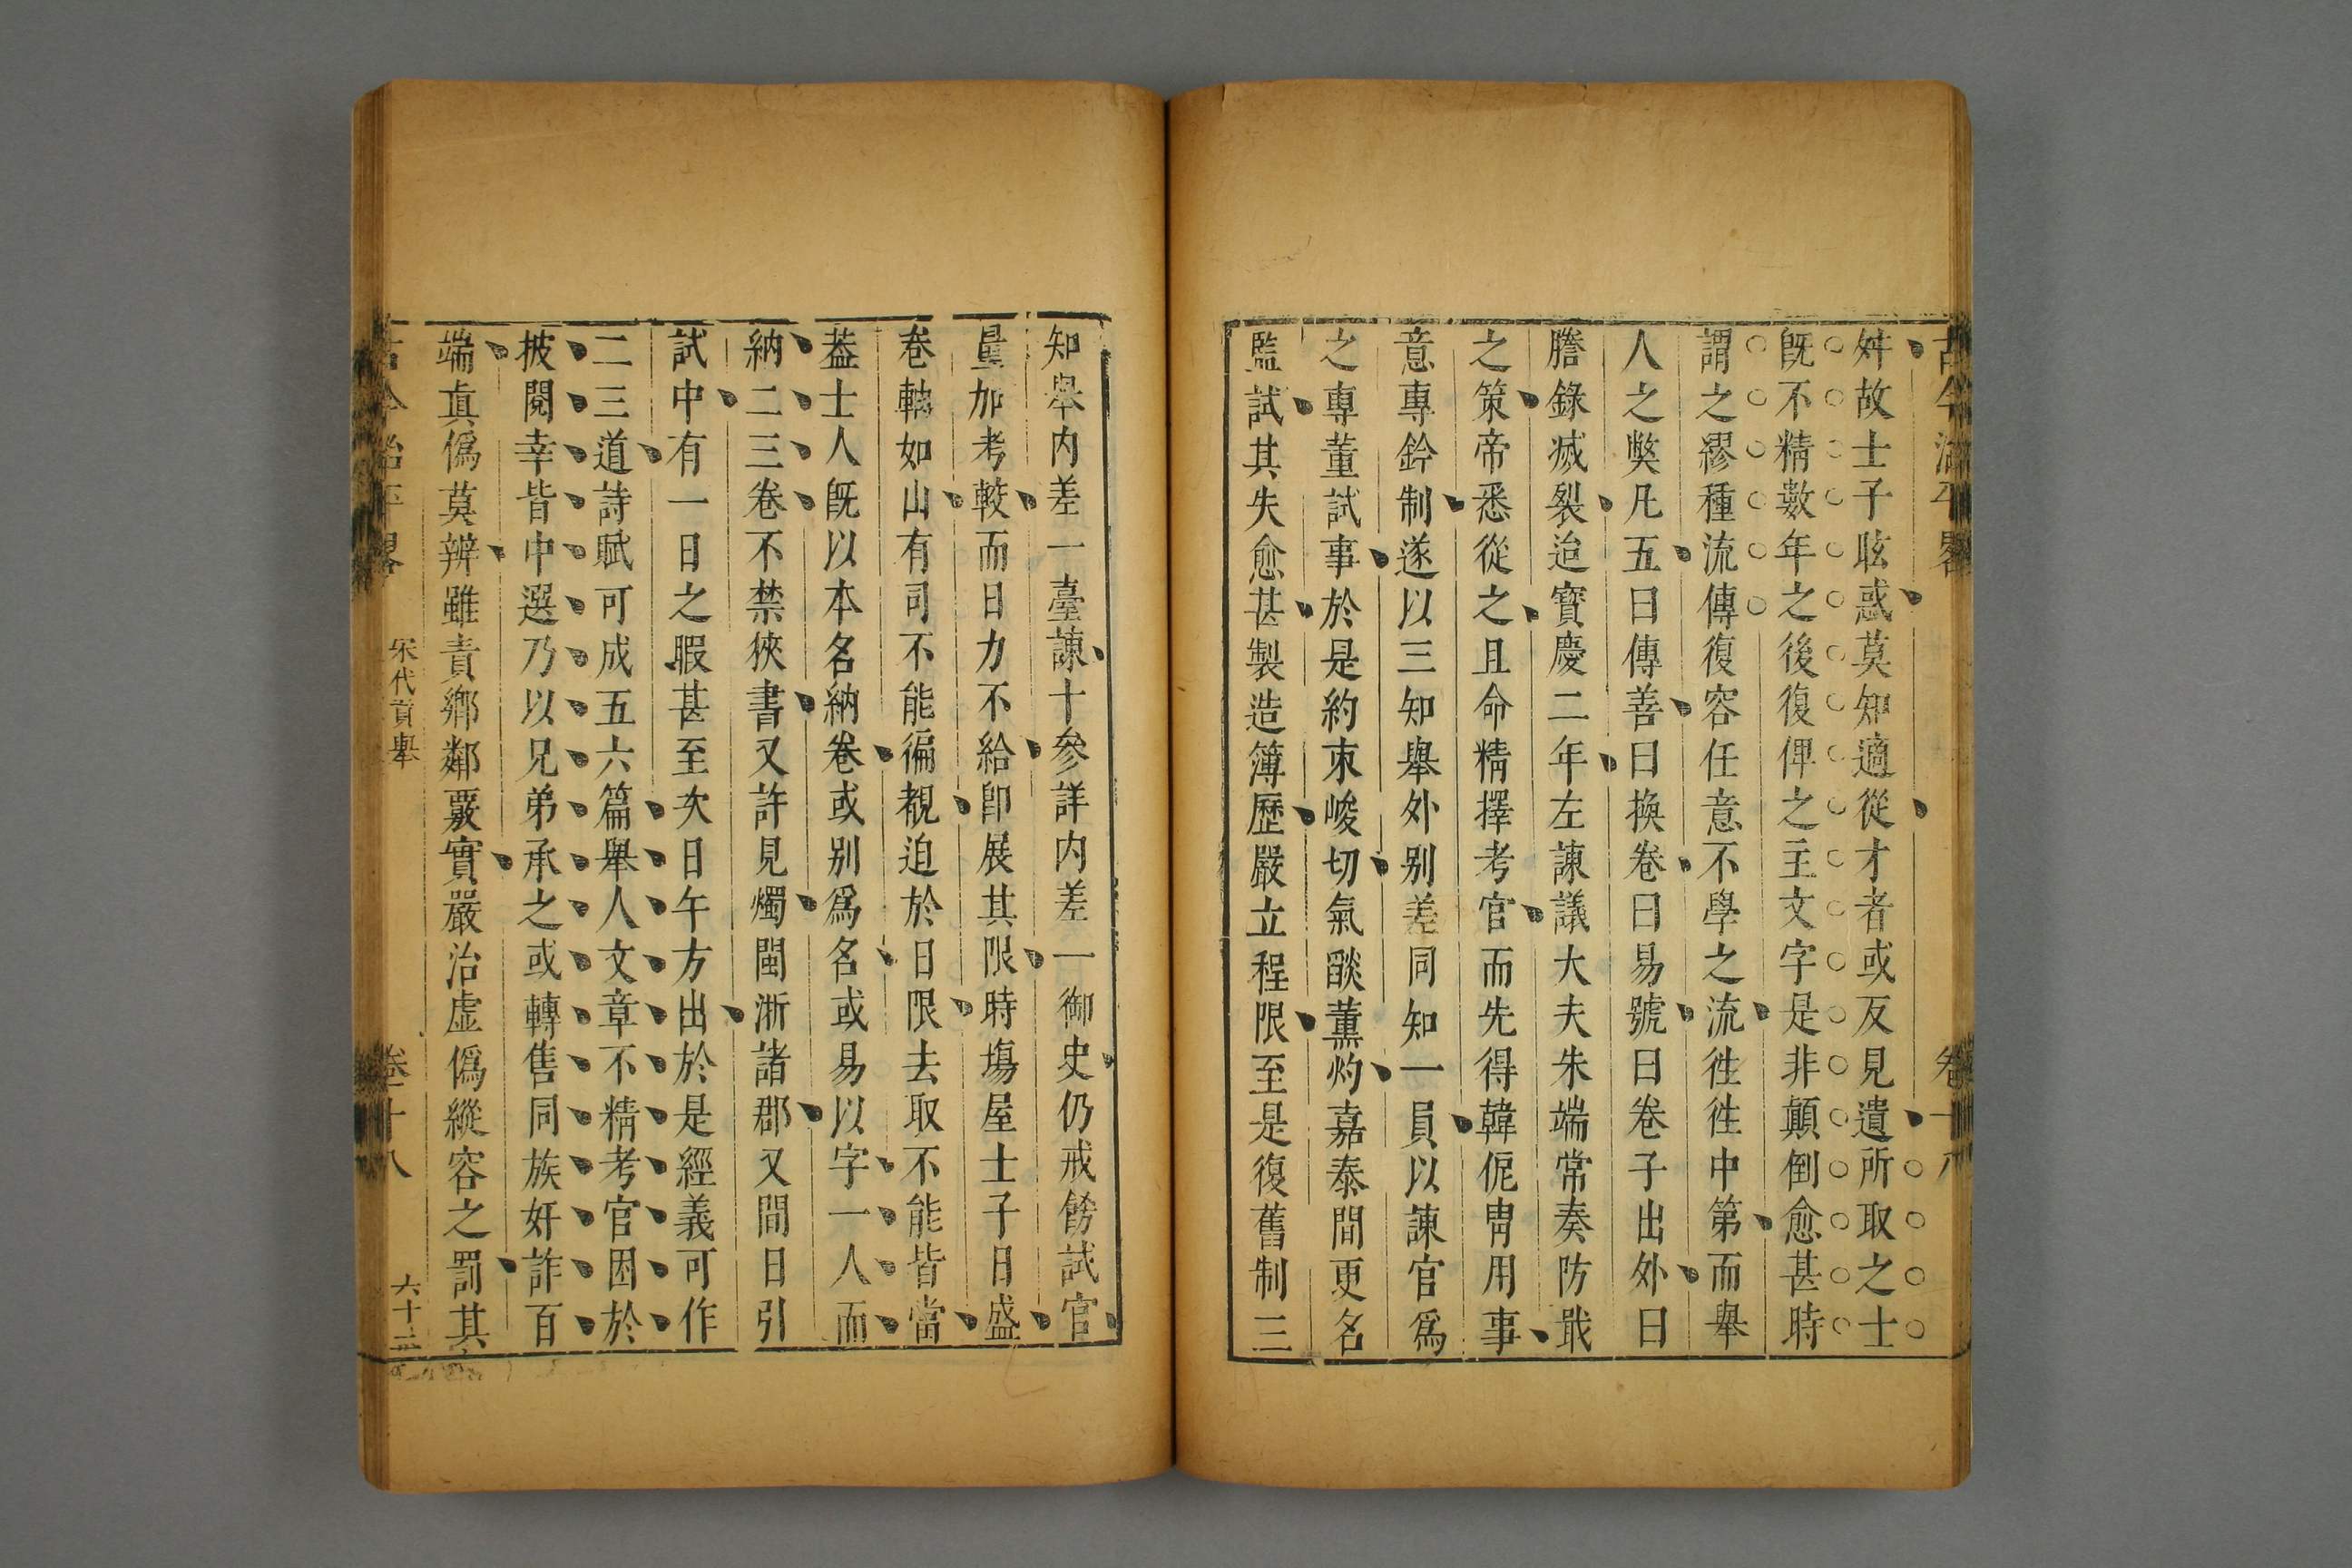 古今治平畧 卷十八
舛故士子眩惑莫知適從才者或反見遺所取之士
旣不精數年之後復俾之主文字是非顛倒愈甚時
謂之繆種流傳復容任意不學之流徃徃中第而舉
人之獘凡五曰傳善曰換卷曰易號曰卷子出外曰
謄錄滅裂迨寳慶二年左諫議大夫朱端常奏防戢
之策帝悉從之且命精擇考官而先得韓侂冑用事
意專鈐制遂以三知舉外别差同知一員以諫官爲
之專董試事於是約束峻切氣燄薫灼嘉泰間更名
監試其失愈甚製造簿歷嚴立程限至是復舊制三
知舉内差一臺諫十參詳内差一御史仍戒餙試官
量加考較而日力不給卽展其限時塲屋士子日盛
卷軸如山有司不能徧覩迫於日限去取不能皆當
葢士人旣以本名納卷或别爲名或易以字一人而
納二三卷不禁挾書又許見燭閩淛諸郡又間日引
試中有一日之暇甚至次日午方出於是經義可作
二三道詩賦可成五六篇舉人文章不精考官困於
披閱幸皆中選乃以兄弟承之或轉售同族奸詐百
端眞僞莫辨雖責鄉鄰覈實嚴治虛僞縱容之罰其
古今治平畧 宋代貢舉 卷十八 六十三